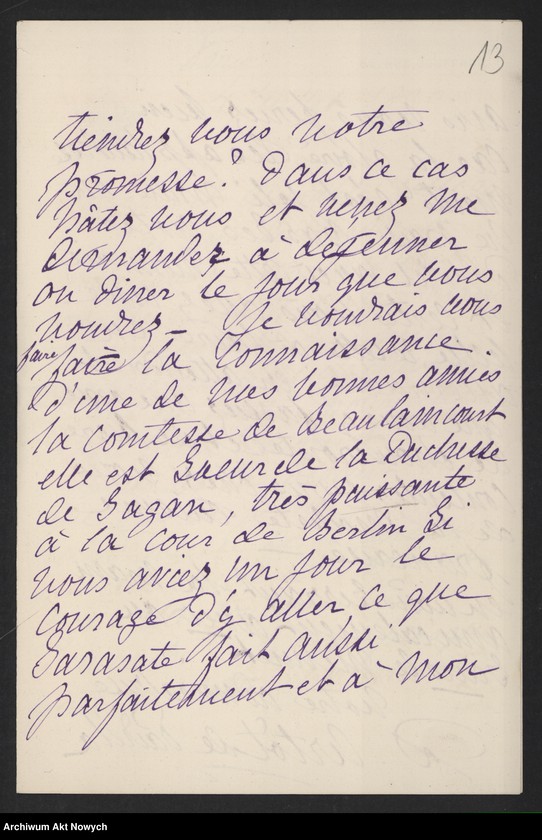 13
tiendrez vous votre
promesse? Dans ce cas
hâtez vous et venez me
demander à dejeuner
ou diner le jour que vous
voudrez – Je voudrais vous
faire faire la connaissance
d'une de mes bonnes amies
la comtesse de Beaulaincourt
elle est Soeur de la Duchesse
de Sagan, très puissante
à la cour de Berlin Si
vous aviez un jour le
courage d'y aller ce que
Sarasate fait aussi
parfaitement et à mon
Archiwum Akt Nowych